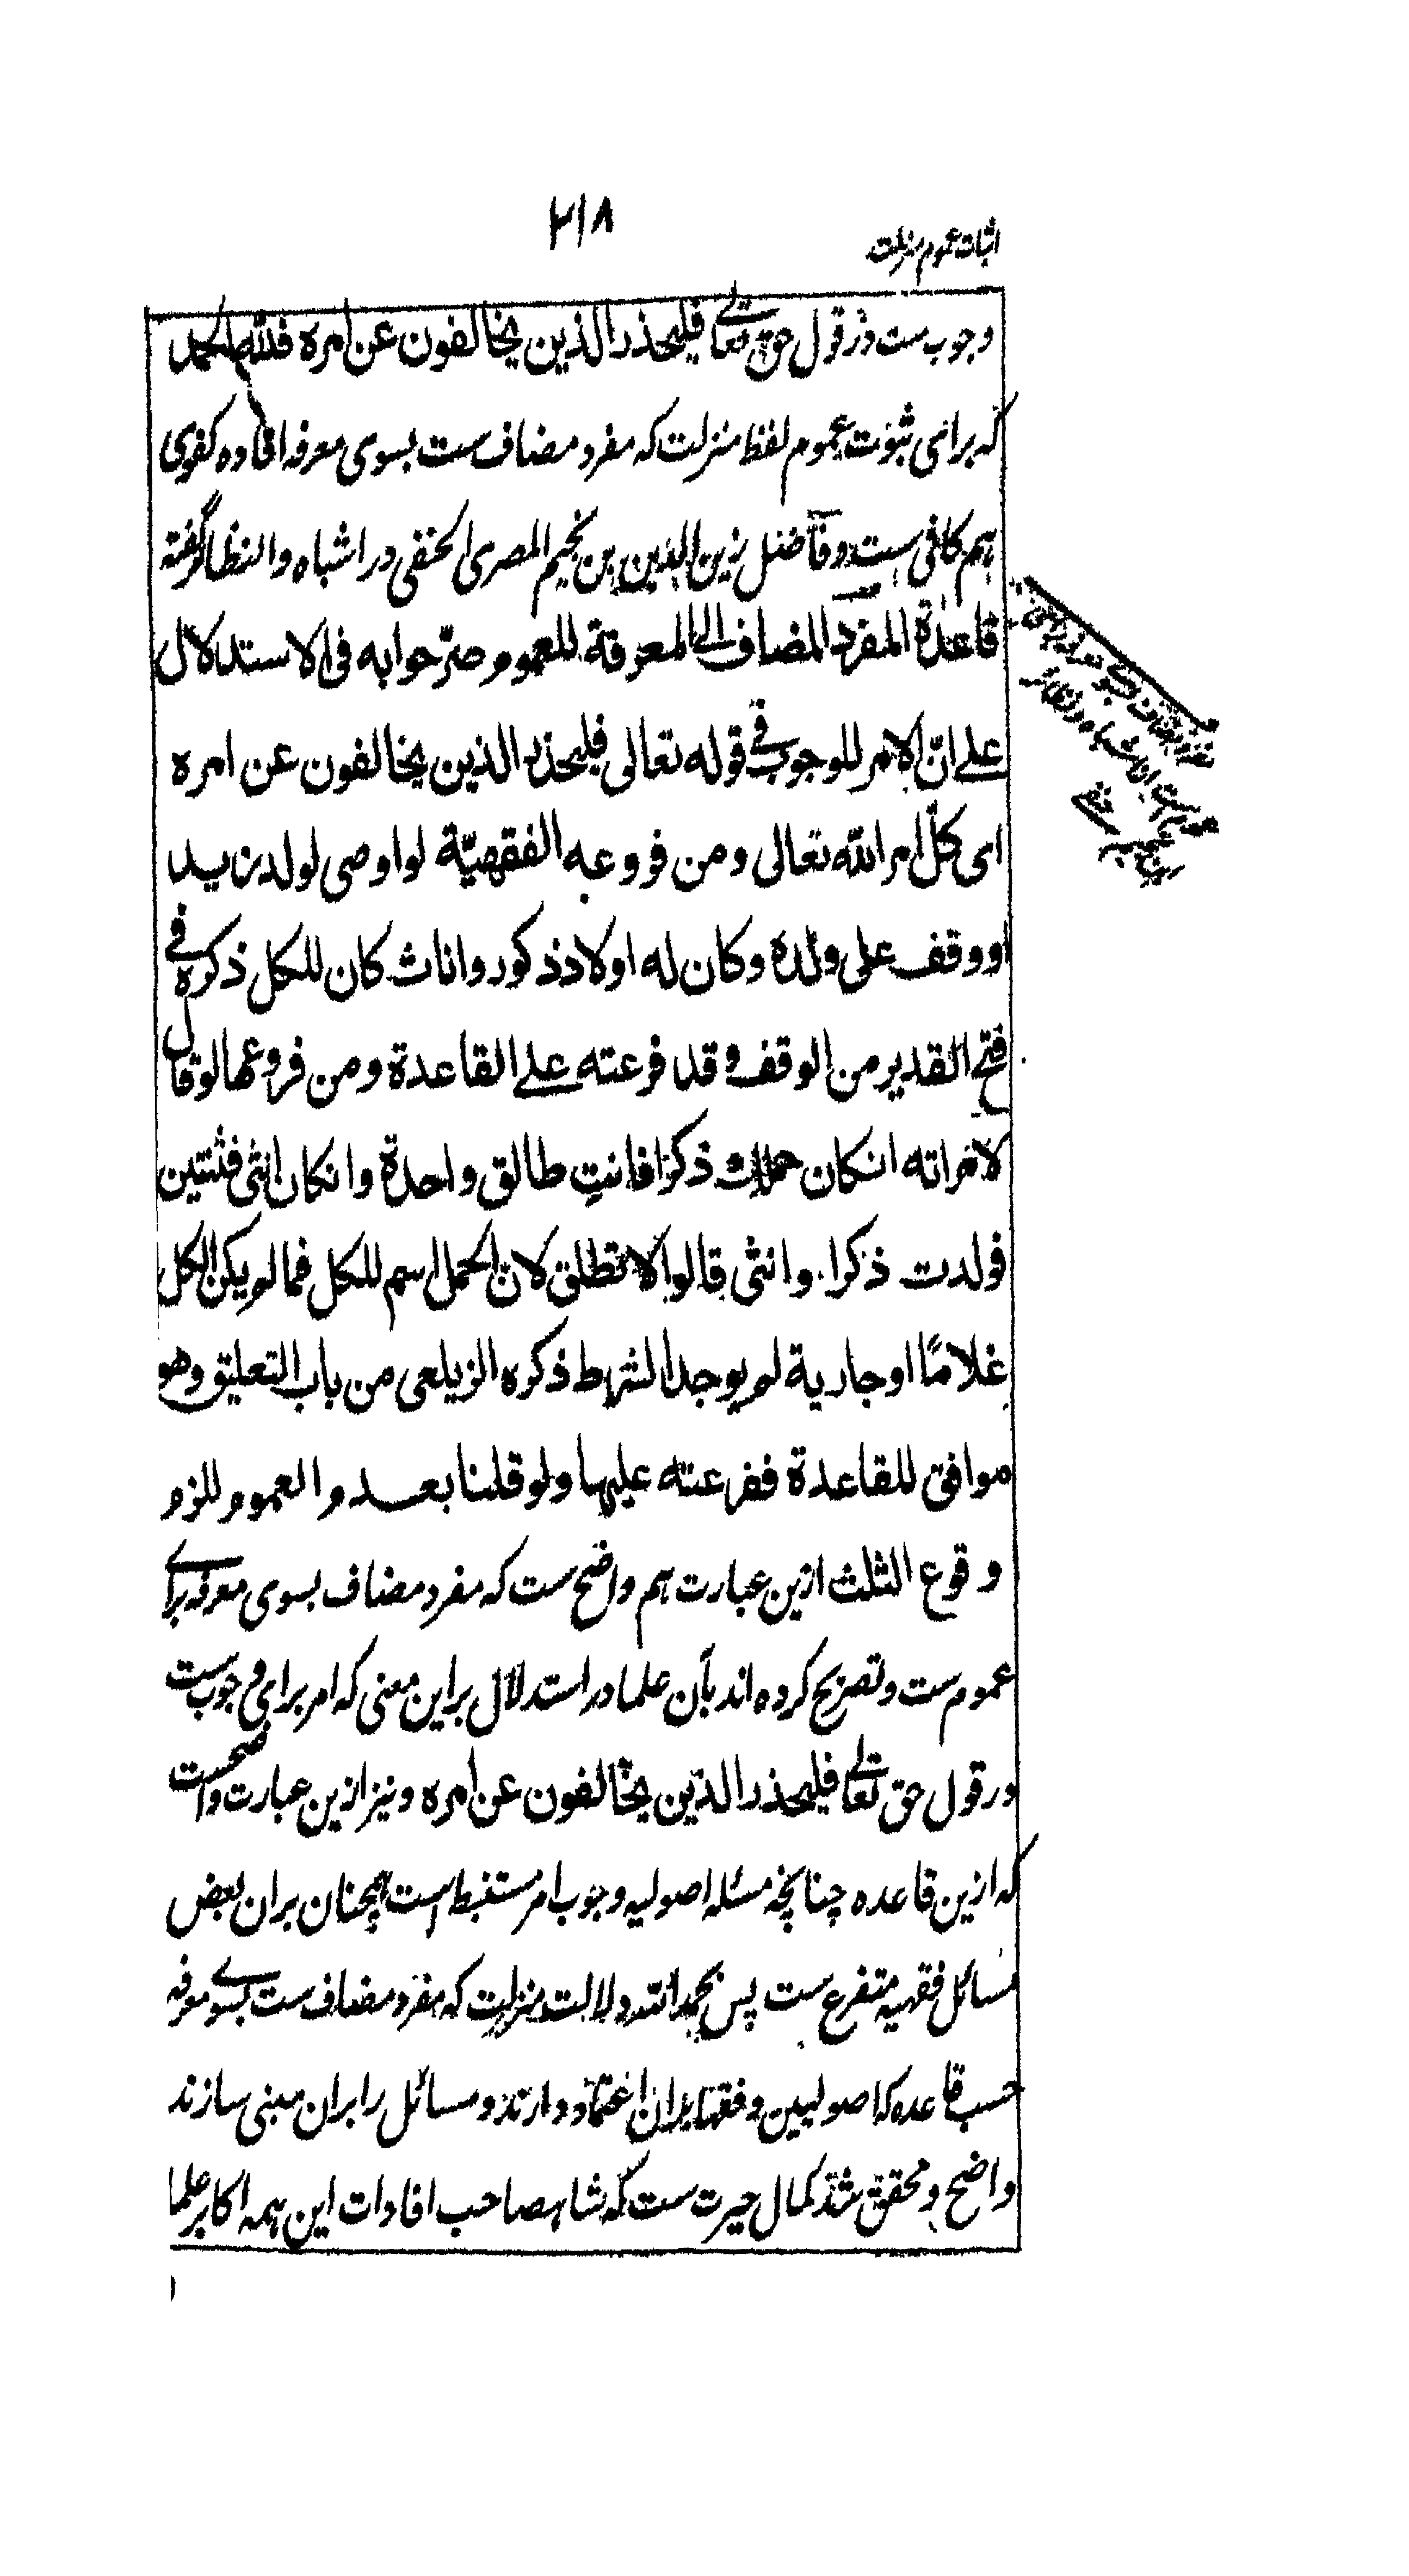 ۲۱۸
اثبات عموم منزلت
وجوب ست در قول حق تعالے فلیحذر الذین یخالفون عن امره فللّه الحمد
که برای ثبوت عموم لفظ منزلت که مفرد مضاف ست بسوی معرفه افاده کفوی
هم کافی ست و فاضل زین الدین بن نجیم المصری الحنفی در اشباه و النظائر گفته
قاعدة المفرد المضاف الی المعرفة للعموم صرّحوا به فی الاستدلال
علے انّ الامر للوجوب فی قوله تعالی فلیحذر الذین یخالفون عن امره
ای کلّ امر اللّه تعالی ومن فروعه الفقهیّة لو اوصی لولد زید
او وقف علی ولده وکان له اولاد ذکور واناث کان للکل ذکره فی
فتح القدیر من الوقف وقد فرعته علے القاعدة ومن فروعها لو قال
لامراته ان کان حملک ذکرا فانتِ طالق واحدة وان کان انثی فثنتین
فولدت ذکرا وانثی قالوا لا تطلق لانّ الحمل اسم للکل فما لم یکن الکل
غلامًا او جاریة لم یوجد الشرط ذکره الزیلعی من باب التعلیق وهو
موافق للقاعدة ففرعته علیها ولو قلنا بعدم العموم للزم
وقوع الثلث ازین عبارت هم واضح ست که مفرد مضاف بسوی معرفه برای
عموم ست و تصریح کرده اند بآن علما در استدلال براین معنی که امر برای وجوب ست
در قول حق تعالے فلیحذر الذین یخالفون عن امره و نیز ازین عبارت واضحست
که ازین قاعده چنانچه مسئله اصولیه وجوب امر مستنبط است همچنان بران بعض
مسائل فقهیه متفرع ست پس بحمد اللّه دلالت منزلت که مفرد مضاف ست بسوے معرفه
حسب قاعده که اصولیین و فقها بران اعتماد دارند و مسائل را بران مبنی سازند
واضح و محقق شد کمال حیرت ست که شاهصاحب افادات این همه اکابر علما